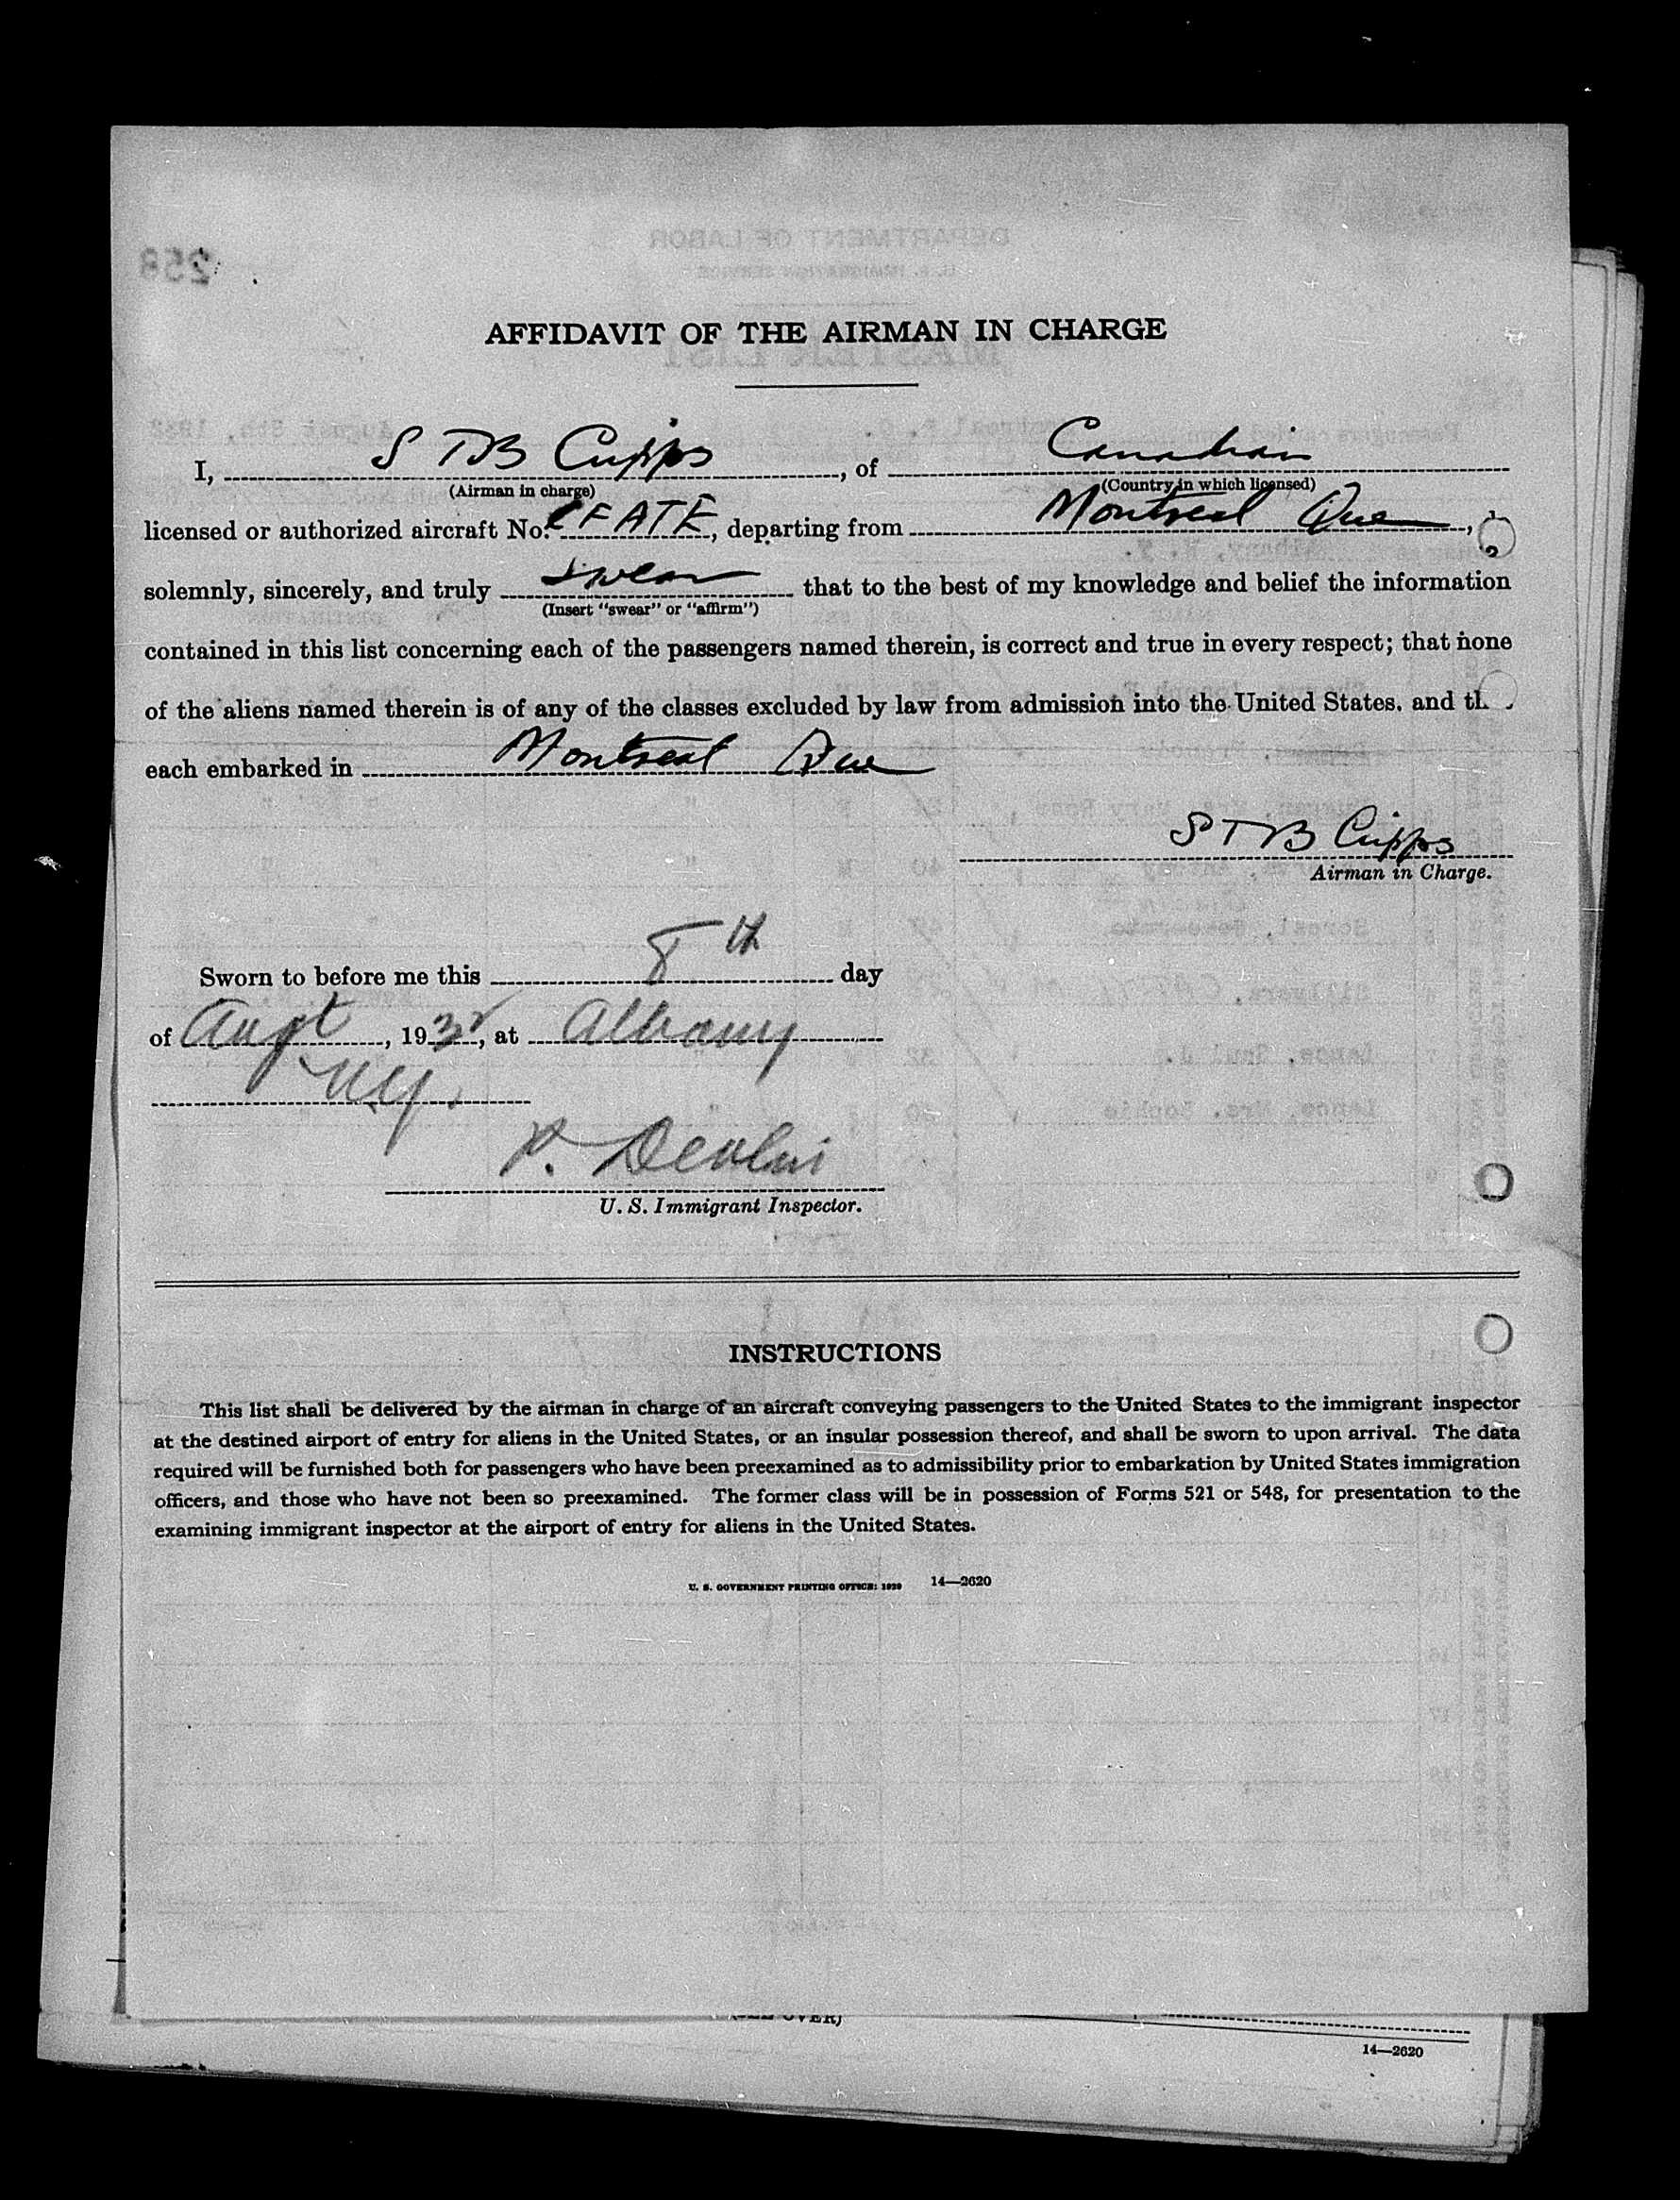 AFFIDAVIT OF THE AIRMAN IN CHARGE
I, S T B Cripps, of Canadian
(Airman in charge) (Country in which licensed)
licensed or authorized aircraft No. CFATE, departing from Montreal Que,
solemnly, sincerely, and truly swear that to the best of my knowledge and belief the information
(Insert "swear" or "affirm")
contained in this list concerning each of the passengers named therein, is correct and true in every respect; that none
of the aliens named therein is of any of the classes excluded by law from admission into the United States. and th
each embarked in Montreal Que
S T B Cripps
Airman in Charge.
Sworn to before me this 8th day
of Augt, 1932, at Albany
N.Y.
P. Devlin
U. S. Immigrant Inspector.
INSTRUCTIONS
This list shall be delivered by the airman in charge of an aircraft conveying passengers to the United States to the immigrant inspector
at the destined airport of entry for aliens in the United States, or an insular possession thereof, and shall be sworn to upon arrival. The data
required will be furnished both for passengers who have been preexamined as to admissibility prior to embarkation by United States immigration
officers, and those who have not been so preexamined. The former class will be in possession of Forms 521 or 548, for presentation to the
examining immigrant inspector at the airport of entry for aliens in the United States.
U. S. GOVERNMENT PRINTING OFFICE: 1929 14—2620
OVER)
14—2620